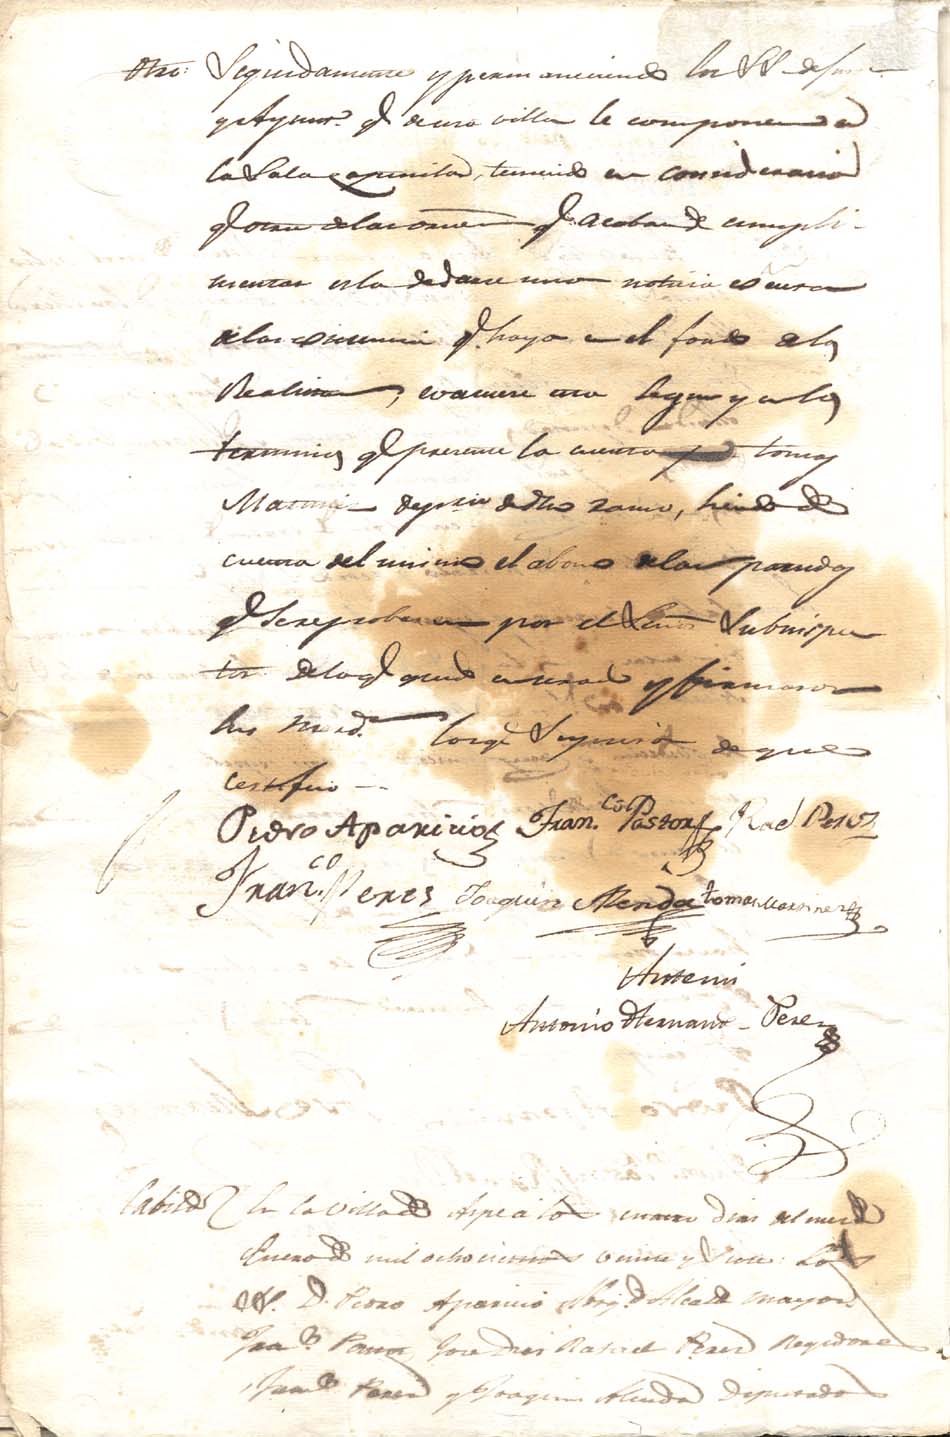 Otro: Seguidamente y permaneciendo los SS. de Just.ª
y Ayunt.º q.e de esta villa le componen en
la Sala capitular, teniendo en consideracion
q.e otra de las ordenes q.e acaban de cumpli-
mentar es la de darse una noticia exacta
de las existencias q.e haya en el fondo de los
Realistas, evacuese esta segun y en los
terminos q.e presente la cuenta Tomas
Martinez deposit.º de dho ramo, siendo de
cuenta del mismo el abono de las partidas
q.e se reprobasen por el Señor Subinspec
tor de lo q.e quedo enterado y firmaron
sus merd.s de que
certifico —
Pedro Aparicio Fran.co Pastor Rael Perez
Fran.co Perez Joaquin Alenda tomas Martinez
Antemi
Antonio Hernand.z Perez
Cabildo En la villa de Aspe a los cuatro dias del mes de
Enero de mil ochocientos veinte y siete: Los
SS. D. Pedro Aparicio Abog.do Alcalde mayor
Fran.co Pastor, Jose Rafael Perez Regidores
Fran.co Perez y Joaquin Alenda Diputados